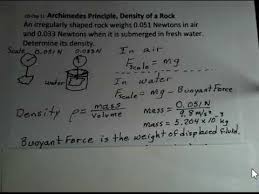 Archimedes Principle, Density of a Rock
An irregularly shaped rock weighs 0.051 Newtons in air
and 0.033 Newtons when it is submerged in fresh water.
Determine its density.
Scale 0.051N 0.033N
In air
Fscale = mg
In water
Fscale = mg - Buoyant Force
Density ρ = mass/volume
mass = 0.051N/9.8 m/s²
mass = 5.204 x 10 kg
Buoyant Force is the weight of displaced fluid.